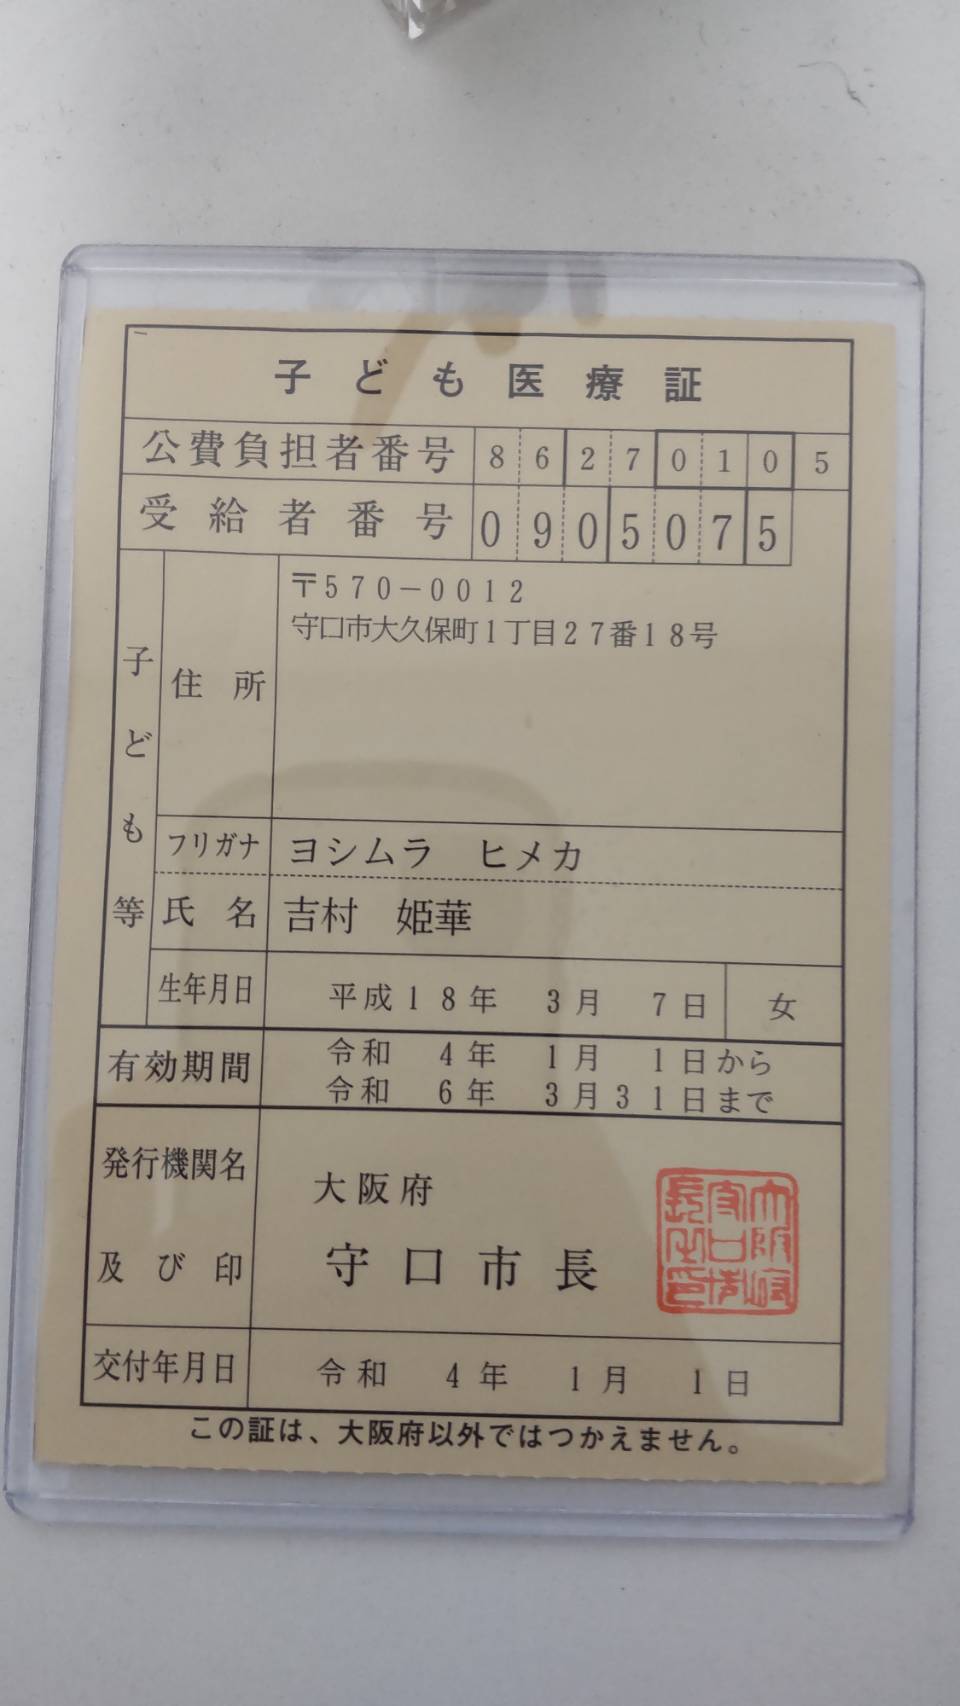 子ども医療証
公費負担者番号 86270105
受給者番号 0905075
子ども等
住所
〒570-0012
守口市大久保町1丁目27番18号
フリガナ ヨシムラ ヒメカ
氏名 吉村 姫華
生年月日 平成18年 3月 7日 女
有効期間 令和 4年 1月 1日から
令和 6年 3月31日まで
発行機関名 大阪府
及び印 守口市長
交付年月日 令和 4年 1月 1日
この証は、大阪府以外ではつかえません。